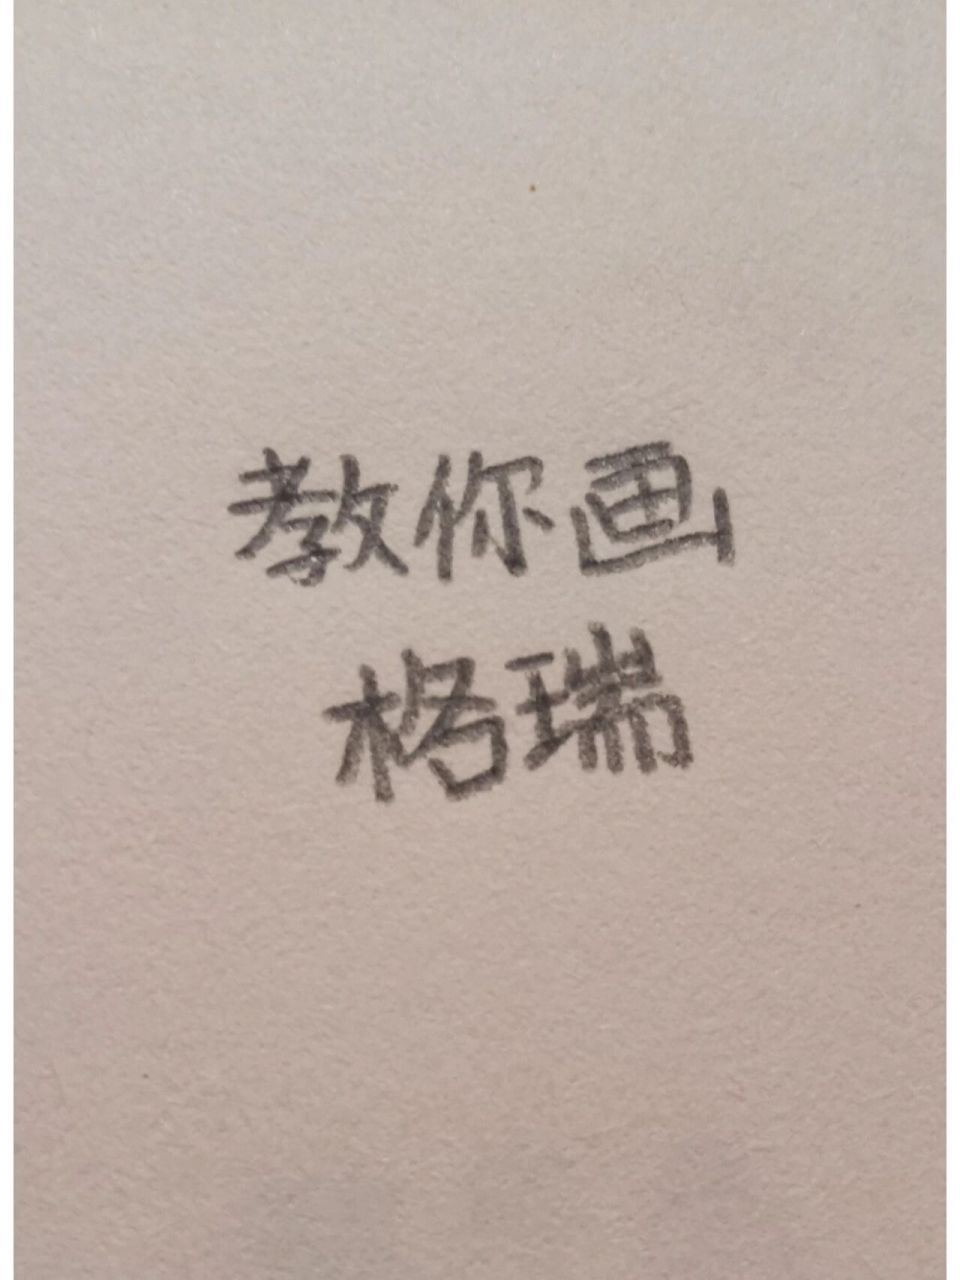 教你画
格瑞